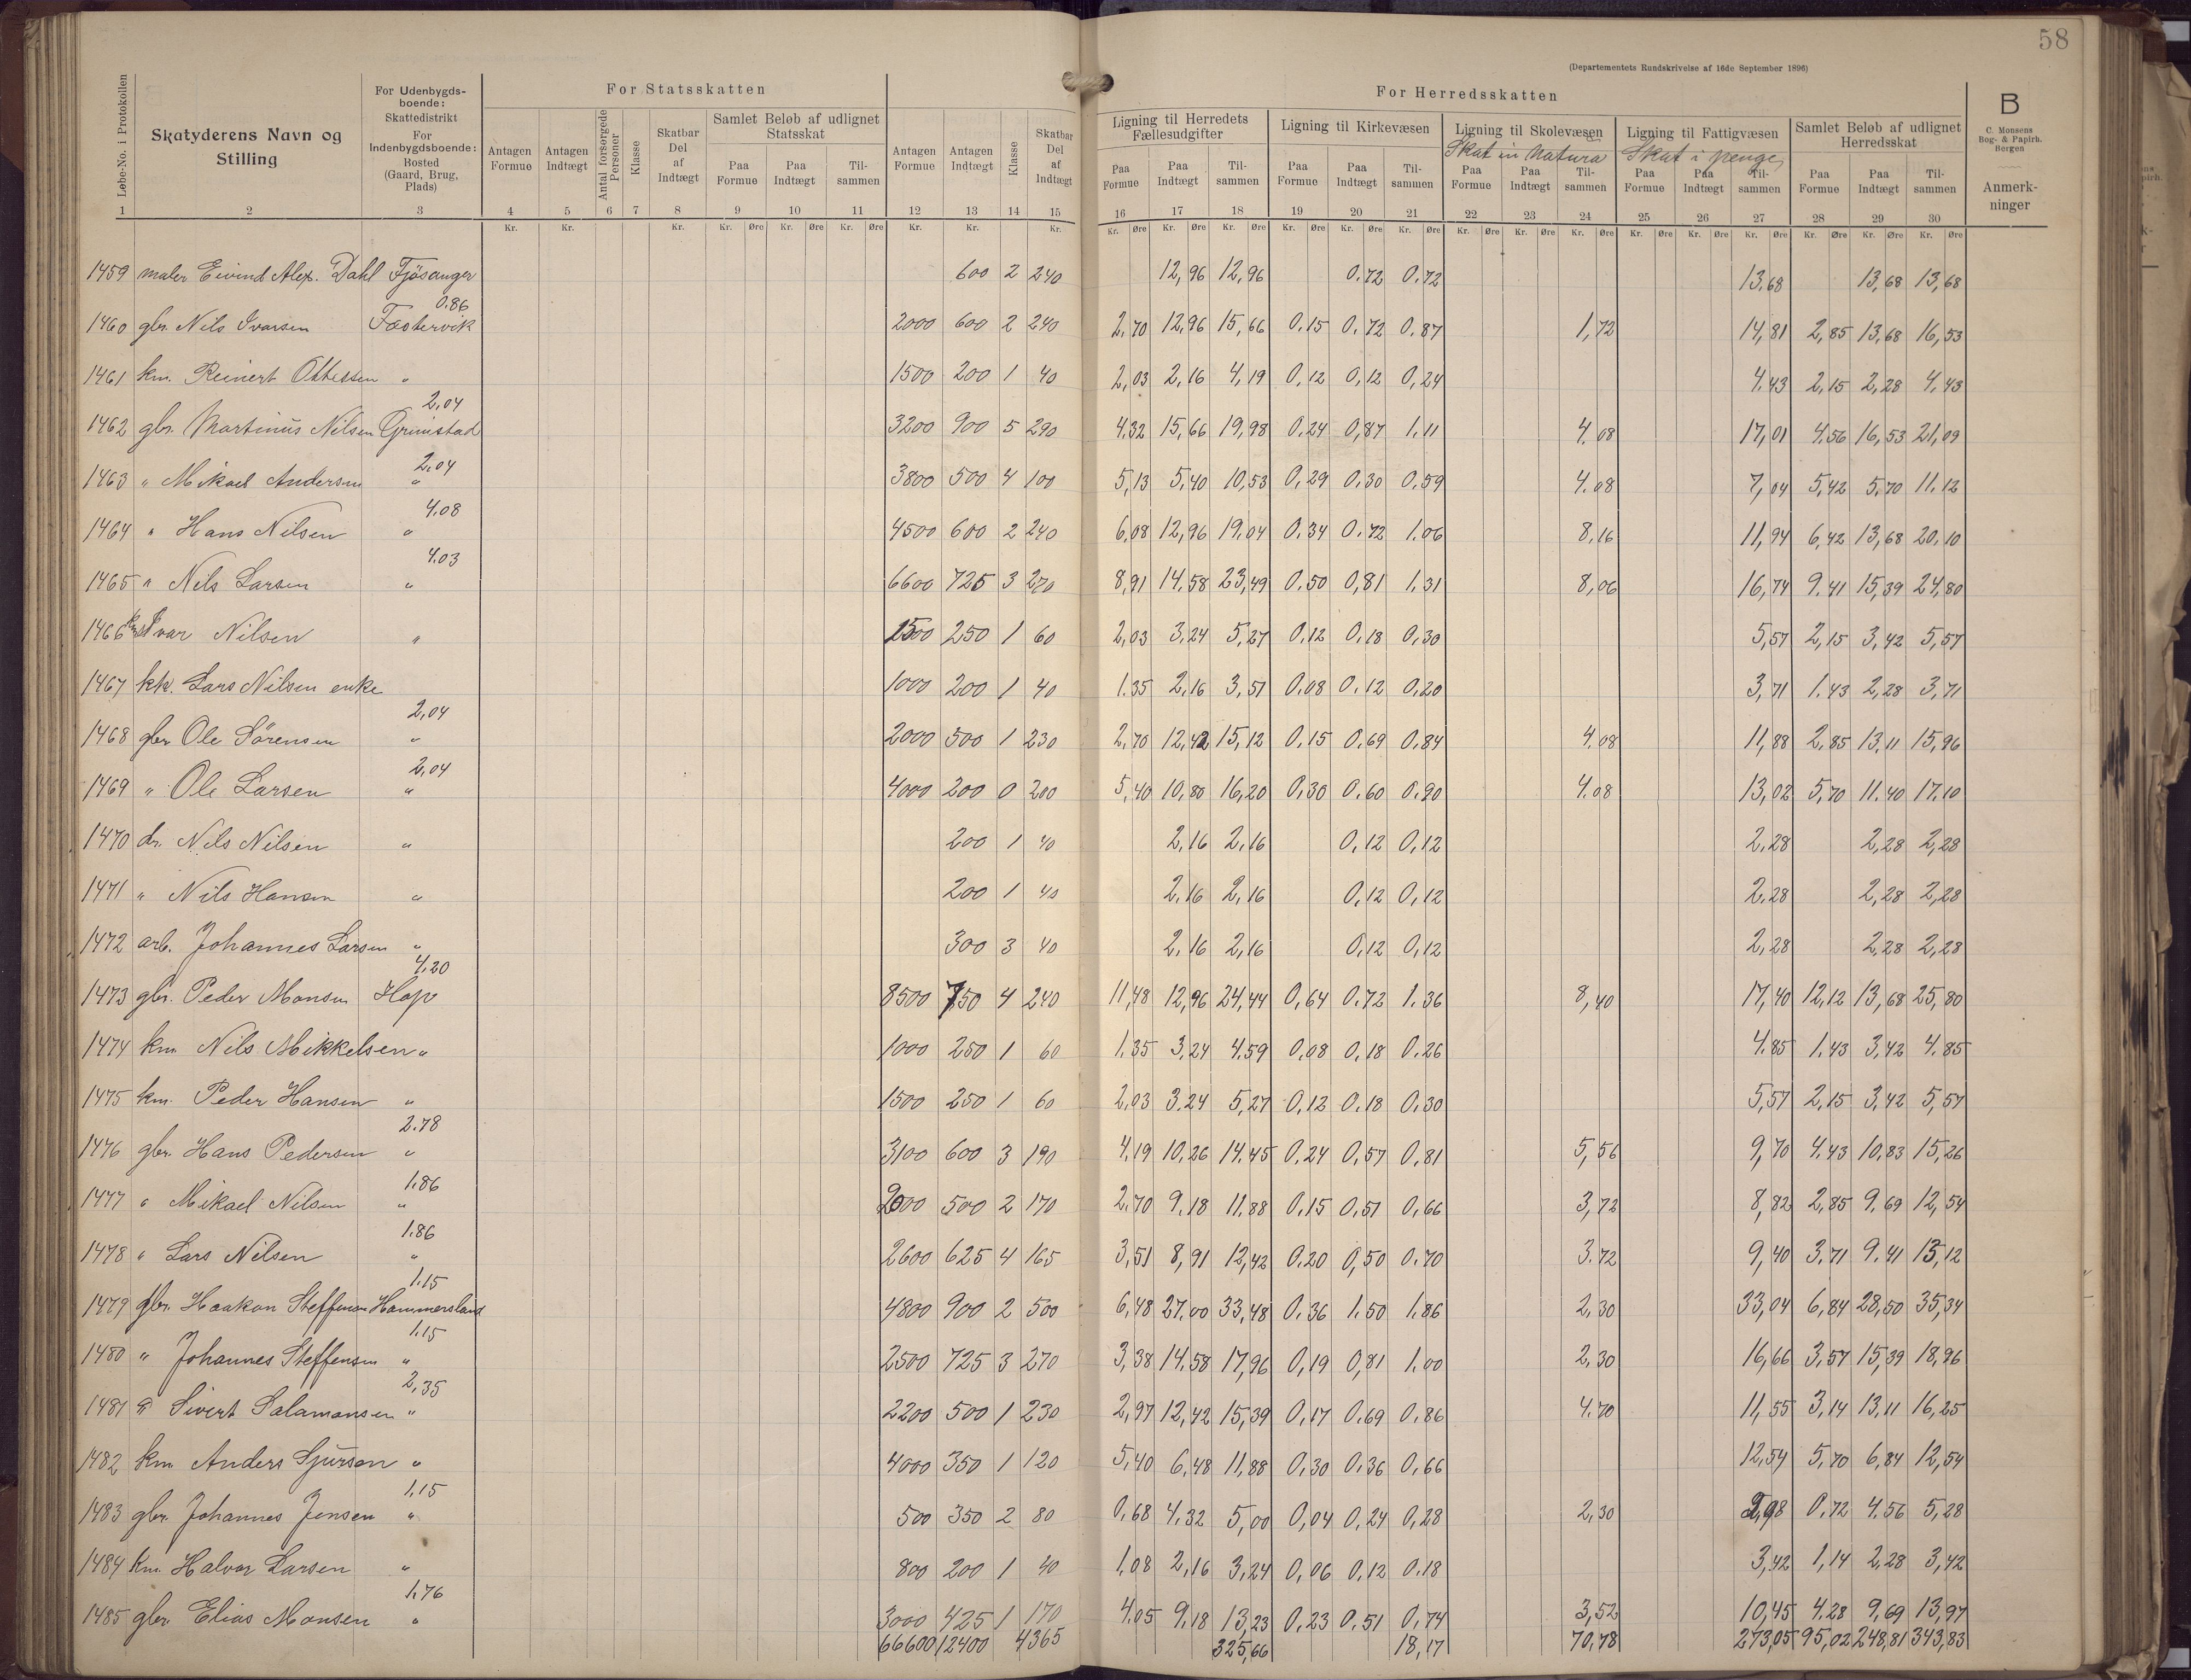 58
(Departementets Rundskrivelse af 16de September 1896)
For Statsskatten
For Herredsskatten
B
C. Monsens
Bog- & Papirh.
Bergen
Anmerkninger
Løbe-No. i Protokollen
Skatyderens Navn og Stilling
For Udenbygdsboende: Skattedistrikt
For Indenbygdsboende: Bosted (Gaard, Brug, Plads)
Antagen Formue
Antagen Indtægt
Antal forsørgede Personer
Klasse
Skatbar Del af Indtægt
Samlet Beløb af udlignet Statsskat
Paa Formue
Paa Indtægt
Tilsammen
Antagen Formue
Antagen Indtægt
Klasse
Skatbar Del af Indtægt
Ligning til Herredets Fællesudgifter
Paa Formue
Paa Indtægt
Tilsammen
Ligning til Kirkevæsen
Paa Formue
Paa Indtægt
Tilsammen
Ligning til Skolevæsen
Skat in natura
Paa Formue
Paa Indtægt
Tilsammen
Ligning til Fattigvæsen
Skat i penge
Paa Formue
Paa Indtægt
Tilsammen
Samlet Beløb af udlignet Herredsskat
Paa Formue
Paa Indtægt
Tilsammen
1 2 3 4 5 6 7 8 9 10 11 12 13 14 15 16 17 18 19 20 21 22 23 24 25 26 27 28 29 30
1459 maler Eivind Alex. Dahl Fjösanger 600 2 240 12,96 12,96 0.72 0.72 13.68 13,68 13,68
0.86
1460 gbr. Nils Ivarsen Fæstervik 2000 600 2 240 2,70 12,96 15,66 0.15 0,72 0.87 1,72 14,81 2,85 13,68 16,53
1461 km. Reinert Ottessen " 1500 200 1 40 2,03 2,16 4,19 0,12 0,12 0,24 4.43 2,15 2,28 4,43
2,04
1462 gbr. Martinus Nilsen Grimstad 3200 900 5 290 4,32 15,66 19,98 0.24 0,87 1.11 4.08 17,01 4.56 16,53 21,09
2.04
1463 " Mikael Andersen " 3800 500 4 100 5,13 5,40 10,53 0,29 0,30 0,59 4.08 7,04 5,42 5.70 11.12
4,08
1464 " Hans Nilsen " 4500 600 2 240 6,08 12,96 19,04 0.34 0.72 1.06 8,16 11,94 6,42 13,68 20.10
4.03
1465 " Nils Larsen " 6600 725 3 270 8,91 14,58 23,49 0.50 0,81 1.31 8,06 16,74 9.41 15,39 24,80
1466 Ivar Nilsen " 1500 250 1 60 2,03 3.24 5,27 0,12 0,18 0,30 5,57 2,15 3,42 5,57
1467 kk. Lars Nilsen enke 1000 200 1 40 1.35 2,16 3,51 0.08 0.12 0,20 3,71 1.43 2,28 3,71
2,04
1468 gbr Ole Sörensen " 2000 500 1 230 2,70 12,42 15,12 0.15 0.69 0,84 4.08 11,88 2,85 13,11 15,96
2,04
1469 " Ole Larsen " 4000 200 0 200 5,40 10,80 16,20 0,30 0.60 0.90 4.08 13,02 5,70 11.40 17.10
1470 dr. Nils Nilsen " 200 1 40 2,16 2,16 0,12 0,12 2,28 2,28 2,28
1471 " Nils Hansen " 200 1 40 2,16 2,16 0,12 0,12 2.28 2,28 2,28
1472 arb. Johannes Larsen " 300 3 40 2,16 2,16 0,12 0,12 2,28 2,28 2,28
4,20
1473 gbr. Peder Monsen Hop 8500 750 4 240 11,48 12,96 24,44 0,64 0.72 1.36 8,40 17,40 12,12 13,68 25,80
1474 km Nils Mikkelsen " 1000 250 1 60 1.35 3,24 4.59 0,08 0,18 0.26 4.85 1.43 3,42 4.85
1475 km. Peder Hansen " 1500 250 1 60 2,03 3.24 5,27 0,12 0.18 0,30 5,57 2,15 3,42 5,57
2.78
1476 gbr. Hans Pedersen " 3100 600 3 190 4,19 10,26 14.45 0.24 0,57 0,81 5,56 9,70 4.43 10,83 15,26
1.86
1477 " Mikael Nilsen " 2000 500 2 170 2,70 9.18 11.88 0.15 0,51 0,66 3,72 8,82 2,85 9,69 12,54
1.86
1478 " Lars Nilsen " 2600 625 4 165 3,51 8,91 12,42 0.20 0,50 0.70 3.72 9,40 3,71 9.41 13,12
1.15
1479 gbr. Haakon Steffensen Hammersland 4800 900 2 500 6,48 27.00 33,48 0,36 1.50 1.86 2,30 33,04 6,84 28,50 35,34
1.15
1480 " Johannes Steffensen " 2500 725 3 270 3,38 14.58 17,96 0,19 0,81 1.00 2,30 16,66 3,57 15,39 18,96
2,35
1481 " Sivert Salamonsen " 2200 500 1 230 2,97 12,42 15,39 0,17 0.69 0.86 4.70 11,55 3,14 13,11 16,25
1482 km Anders Sjurson " 4000 350 1 120 5,40 6,48 11,88 0,30 0.36 0,66 12,54 5,70 6,84 12,54
1,15
1483 gbr. Johannes Jensen " 500 350 2 80 0,68 4,32 5,00 0,04 0,24 0,28 2,30 2,98 0,72 4.56 5,28
1484 km. Halvor Larsen " 800 200 1 40 1,08 2,16 3,24 0,06 0,12 0.18 3,42 1,14 2,28 3,42
1.76
1485 gbr Elias Monsen " 3000 425 1 170 4.05 9,18 13,23 0,23 0.51 0,74 3,52 10,45 4.28 9,69 13,97
66600 12400 4365 325,66 18,17 70,78 273,05 95,02 248,81 343,83